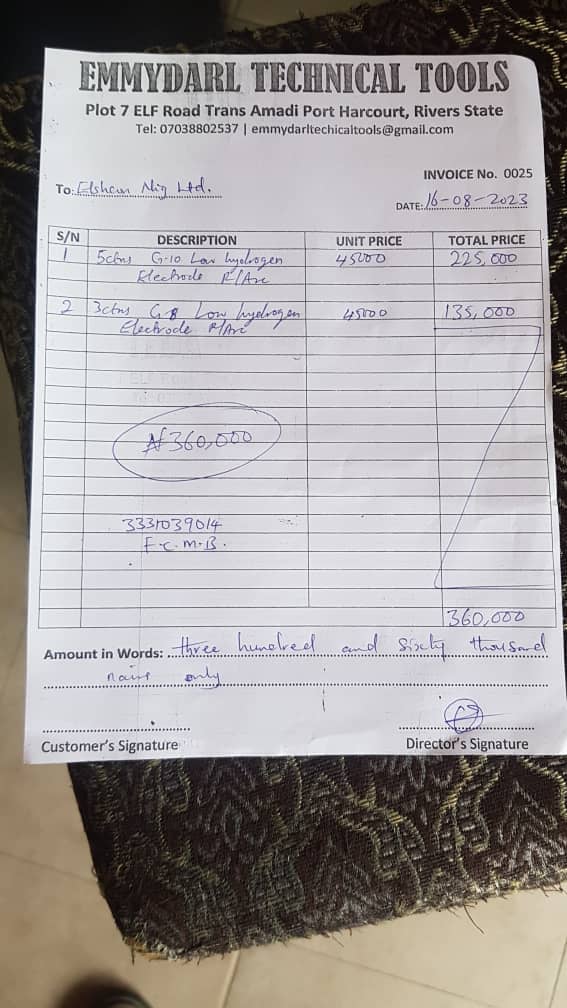 EMMYDARL TECHNICAL TOOLS
Plot 7 ELF Road Trans Amadi Port Harcourt, Rivers State
Tel: 07038802537 | emmydarltechicaltools@gmail.com
INVOICE No. 0025
To: Elshcon Nig Ltd.
DATE: 16-08-2023
S/N DESCRIPTION UNIT PRICE TOTAL PRICE
1 5ctns G-10 Low hydrogen 45000 225,000
Electrode R/Arc
2 3ctns G8 Low hydrogen 45000 135,000
Electrode R/Arc
₦360,000
3331039014
F.C.M.B.
360,000
Amount in Words: three hundred and sixty thousand
naira only
Customer's Signature Director's Signature